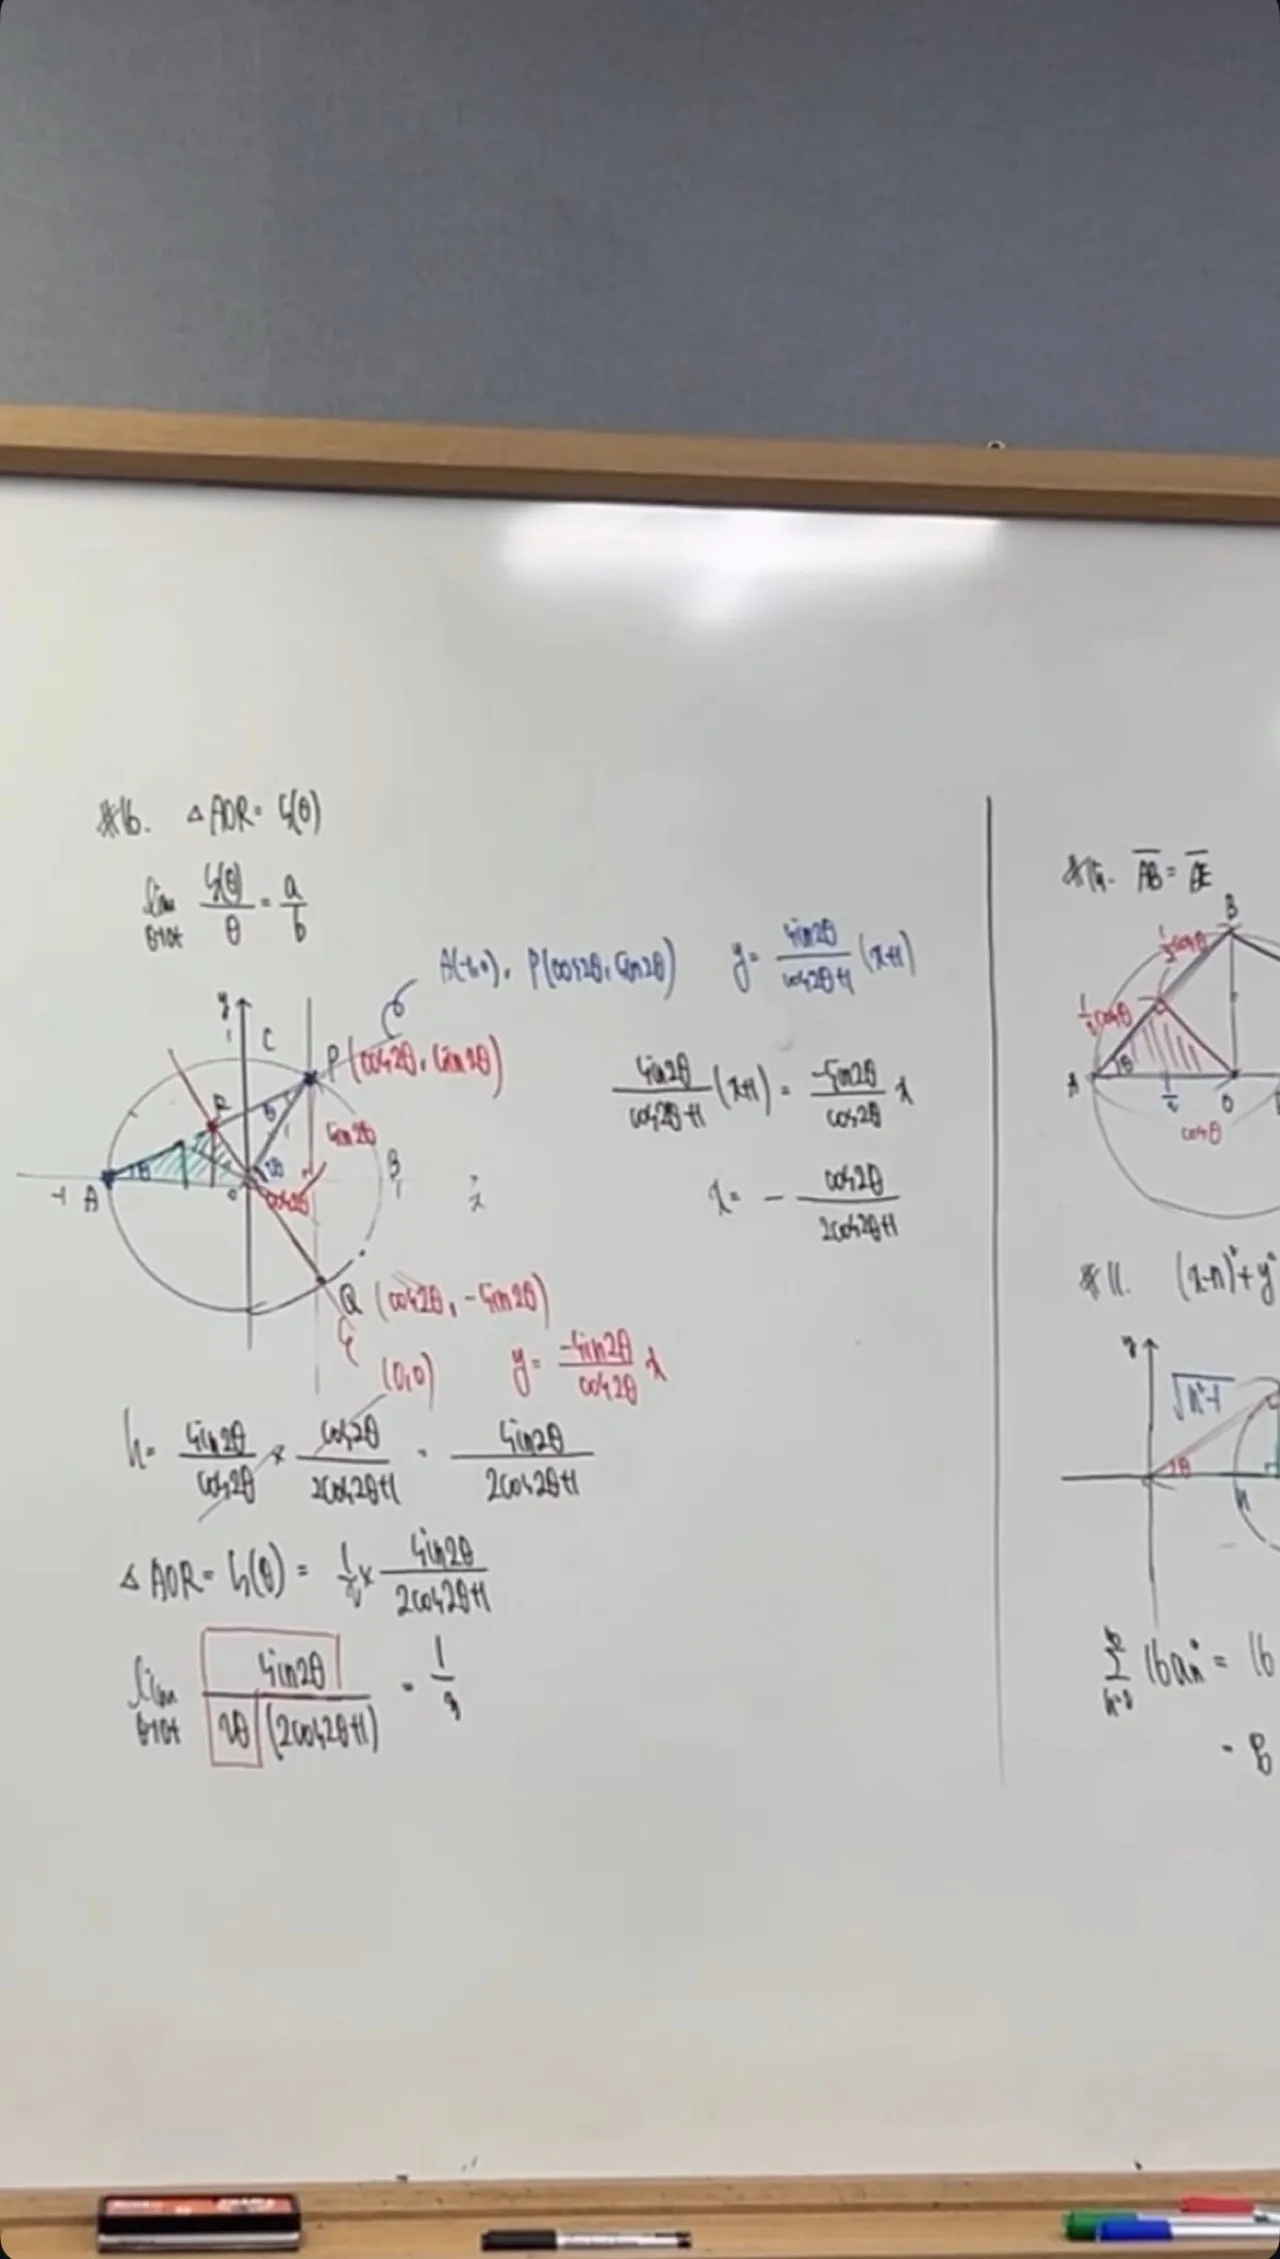 #16. △AOR = S(θ)
lim θ→0+ S(θ)/θ = a/b
A(-1,0), P(cos2θ, sin2θ) y = sin2θ/(cos2θ+1) (x+1)
y
1
C
P(cos2θ, sin2θ)
R
θ
1
sin2θ
θ
2θ
B
-1 A
O
cos2θ
1
sin2θ/(cos2θ+1) (x+1) = -sin2θ/cos2θ x
x = - cos2θ/(2cos2θ+1)
Q (cos2θ, -sin2θ)
(0,0) y = -sin2θ/cos2θ x
h = sin2θ/cos2θ × cos2θ/(2cos2θ+1) = sin2θ/(2cos2θ+1)
△AOR = S(θ) = 1/2 × sin2θ/(2cos2θ+1)
lim θ→0+ sin2θ/(2θ(2cos2θ+1)) = 1/3
AB = BE
B
1/2 cosθ
1/2 cosθ
A
θ
1/2
O
cosθ
#11. (x-n)²+y²
y
√(n²-1)
θ
n
= 8